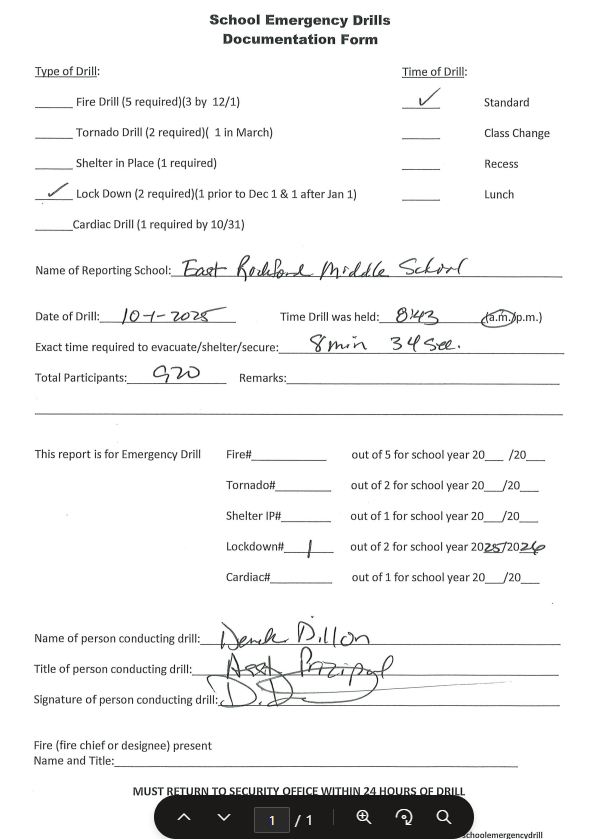 School Emergency Drills
Documentation Form
Type of Drill: Time of Drill:
______ Fire Drill (5 required)(3 by 12/1) ______ ✓ Standard
______ Tornado Drill (2 required)( 1 in March) ______ Class Change
______ Shelter in Place (1 required) ______ Recess
___✓___ Lock Down (2 required)(1 prior to Dec 1 & 1 after Jan 1) ______ Lunch
______Cardiac Drill (1 required by 10/31)
Name of Reporting School: East Rockford Middle School
Date of Drill: 10-1-2025 Time Drill was held: 8:43 (a.m./p.m.)
Exact time required to evacuate/shelter/secure: 8 min 34 sec.
Total Participants: 920 Remarks:
This report is for Emergency Drill Fire#__________ out of 5 for school year 20___ /20___
Tornado#_________ out of 2 for school year 20___/20___
Shelter IP#________ out of 1 for school year 20___/20___
Lockdown# 1 out of 2 for school year 2025/2026
Cardiac#__________ out of 1 for school year 20___/20___
Name of person conducting drill: Derek Dillon
Title of person conducting drill: Asst Principal
Signature of person conducting drill: D. D
Fire (fire chief or designee) present
Name and Title:
MUST RETURN TO SECURITY OFFICE WITHIN 24 HOURS OF DRILL
1 / 1
schoolemergencydrill